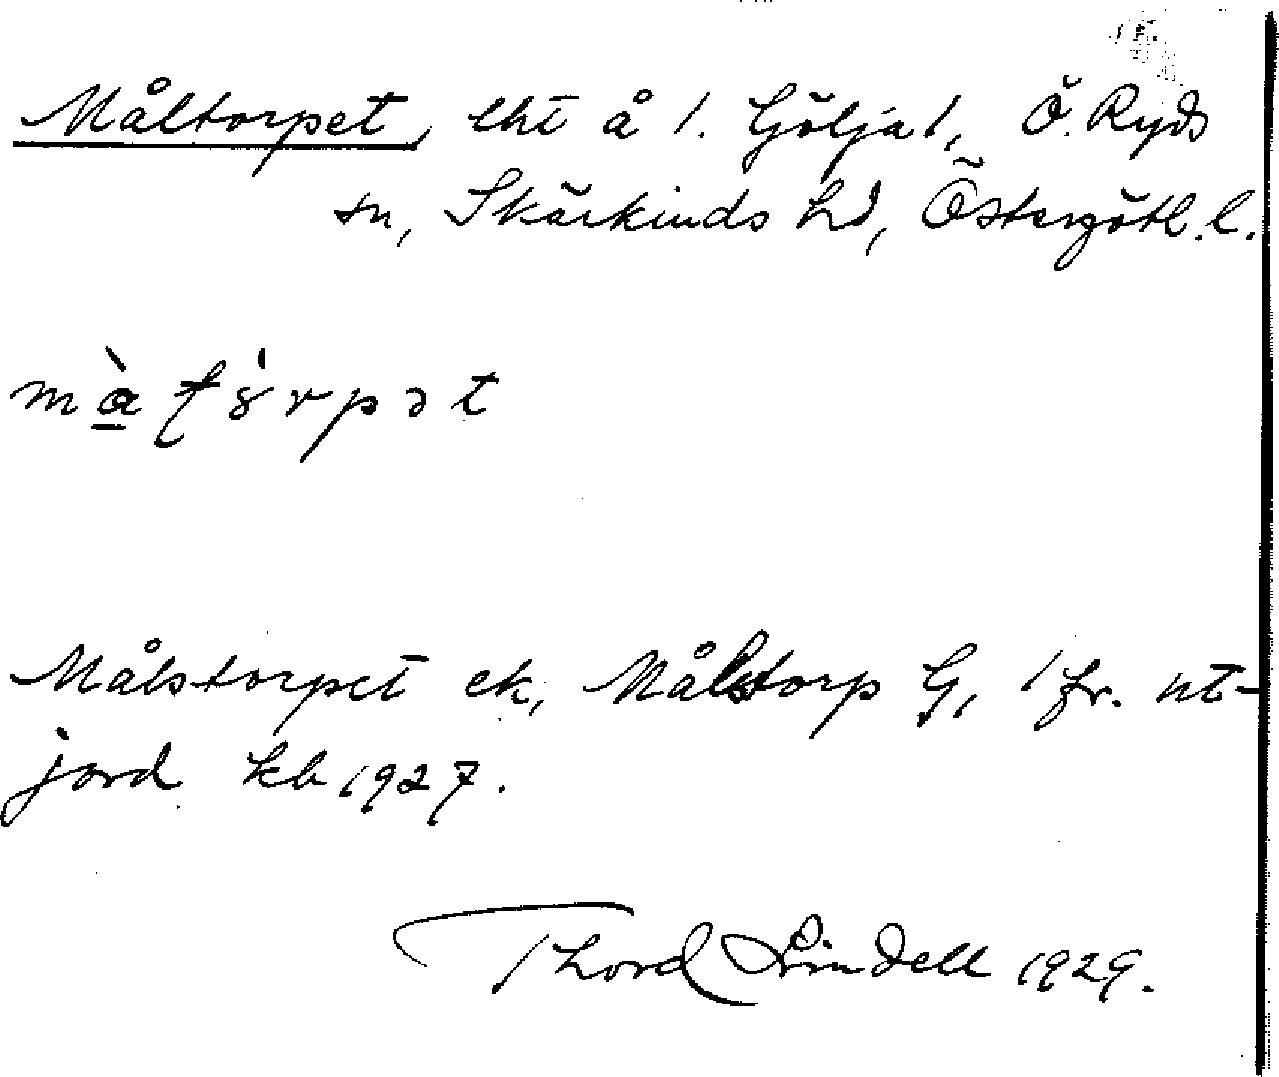 Måltorpet, lht å 1. Gölja 1, Ö. Ryds
sn, Skärkinds hd, Östergötl. l.
Målstorpet ek, Målstorp G, 1 fr. ut-
jord kb 1927.
Thord Lindell 1929.